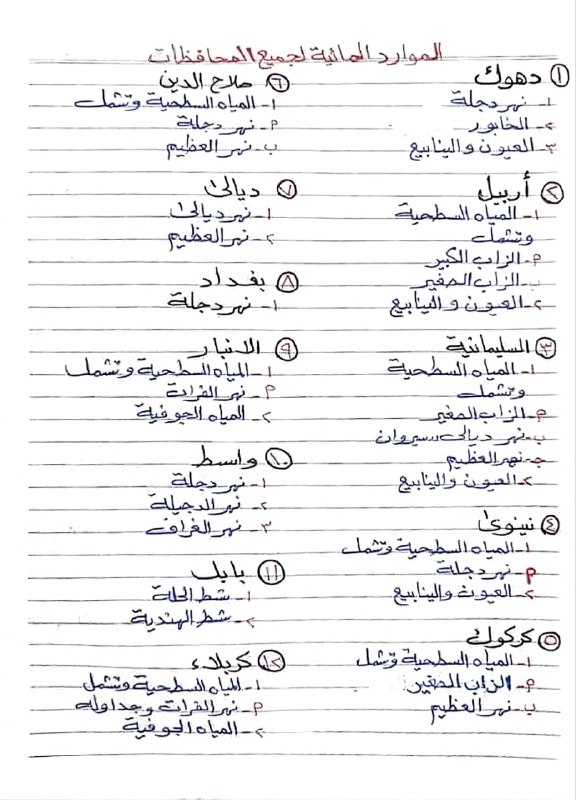 الموارد المائية لجميع المحافظات
١ دهوك
١- نهر دجلة
٢- الخابور
٣- العيون والينابيع
٢ أربيل
١- المياه السطحية
وتشمل
أ- الزاب الكبير
ب- الزاب الصغير
٢- العيون والينابيع
٣ السليمانية
١- المياه السطحية
وتشمل
أ- الزاب الصغير
ب- نهر ديالى "سيروان
ج- نهر العظيم
٢- العيون والينابيع
٤ نينوى
١- المياه السطحية وتشمل
أ- نهر دجلة
٢- العيون والينابيع
٥ كركوك
١- المياه السطحية وتشمل
أ- الزاب الصغير
ب- نهر العظيم
٦ صلاح الدين
١- المياه السطحية وتشمل
أ- نهر دجلة
ب- نهر العظيم
٧ ديالى
١- نهر ديالى
٢- نهر العظيم
٨ بغداد
١- نهر دجلة
٩ الانبار
١- المياه السطحية وتشمل
أ- نهر الفرات
٢- المياه الجوفية
١٠ واسط
١- نهر دجلة
٢- نهر الدجيلة
٣- نهر الغراف
١١ بابل
١- شط الحلة
٢- شط الهندية
١٢ كربلاء
١- المياه السطحية وتشمل
أ- نهر الفرات وجداوله
٢- المياه الجوفية